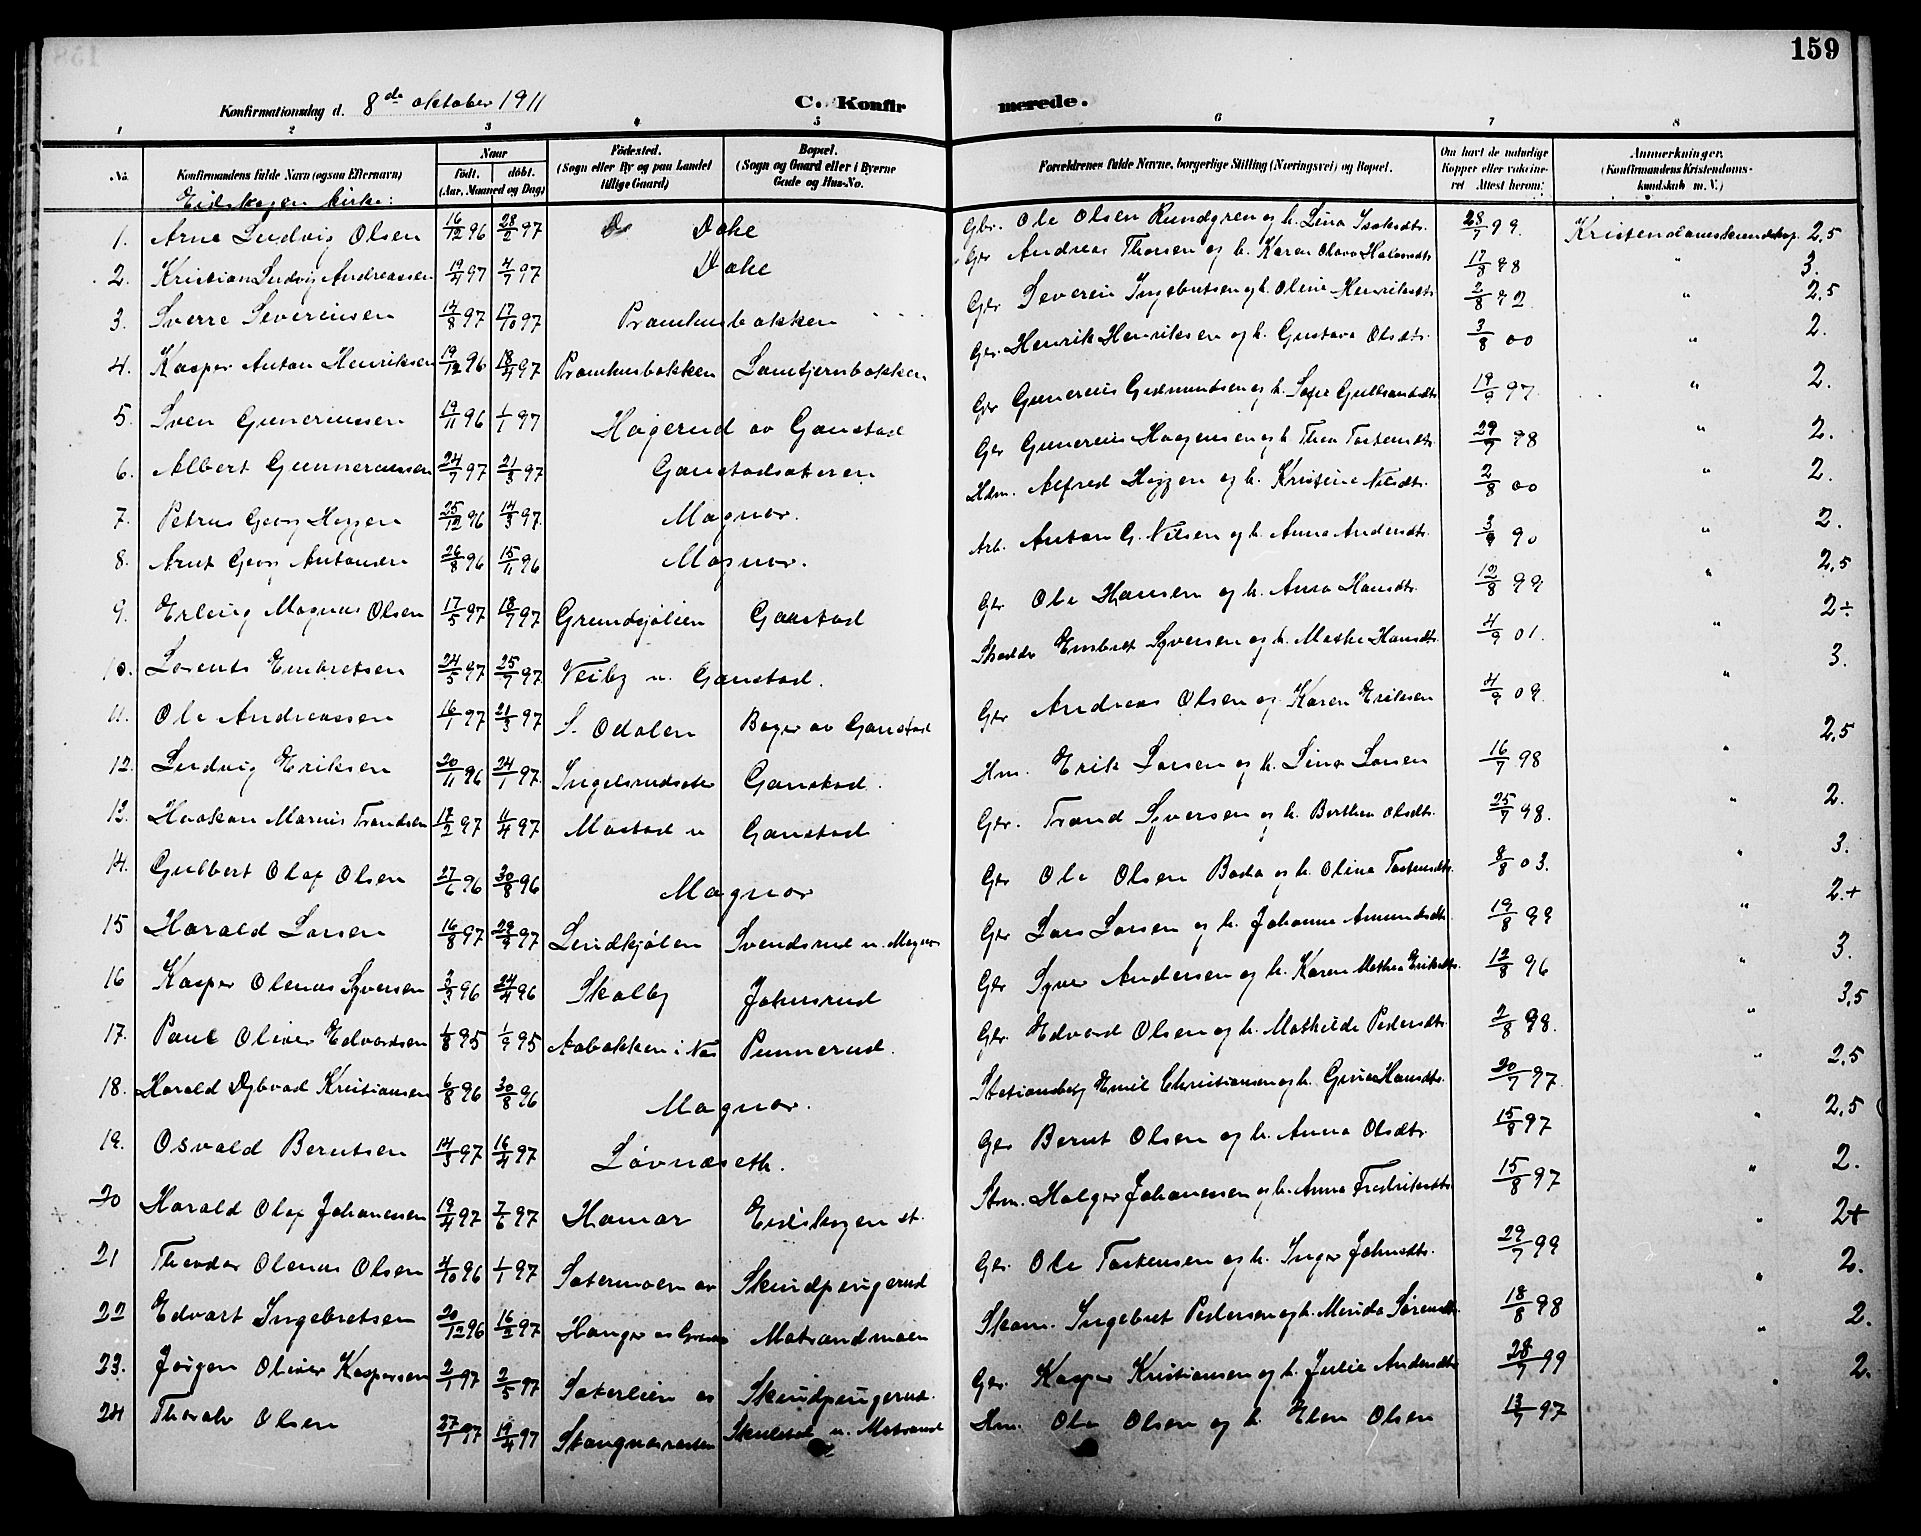 159
Konfirmationsdag d. 8de oktober 1911 C. Konfirmerede.
1 2 3 4 5 6 7 8
No. Konfirmandens fulde Navn (ogsaa Efternavn) Naar født. døbt. (Aar, Maaned og Dag) Fødested. (Sogn eller By og paa Landet tillige Gaard) Bopæl. (Sogn og Gaard eller i Byerne Gade og Hus-No. Forældrenes fulde Navne, borgerlige Stilling (Næringsvei) og Bopæl. Om havt de naturlige Kopper eller vaksineret Attest herom: Anmærkninger. (Konfirmandens Kristendomskundskab m. V.)
Eidskogen kirke:
1. Arne Ludvig Olsen 16/12 96 28/2 97 Gbr. Ole Olsen Rundgren og h. Lina 28/7 99. Kristendomskundskap. 2,5
2. Kristian Ludvig Andreassen 19/4 97 4/7 97 Gbr Andreas Thorsen og h. Karen Olava 17/8 98 " 3.
3. Sverre Severinsen 14/8 97 17/10 97 Pramhusbakken Gbr Severin Ingebretsen og h. Oline Henriksdtr " 2,5
4. Kasper Anton Henriksen 19/12 96 18/4 97 Pramhusbakken Lamtjernbakken Gbr. Henrik Henriksen og h. Gustava Olsdtr. 3/8 00 " 2.
5. Sven Guneriusen 19/11 96 1/1 97 Hagerud av Gaustad Gbr Gunerius Gudmundsen og h. Sofie Gulbrandsdtr 19/9 97. " 2.
6. Albert Gunnerausen 24/7 97 21/3 97 Gaustadsæteren Gbr Gunerius Haagensen og h. Thea Tostensdtr. 29/7 98 " 2.
7. Petrus Georg Heggen 25/12 96 14/3 97. Magnor. Hdm. Alfred Heggen og h. Kristine Nilsdtr. 2/8 00 " 2.
8. Arnt Georg Antonsen 26/8 96 15/11 96 Magnor. Arb. Anton G. Nilsen og h. Anna Andersdtr. 3/9 90 " 2.
9. Erling Magnus Olsen 17/5 97 18/7 97 Grundsjølien Gaustad Gbr Ole Hansen og h. Anna Hansdtr. 12/8 99 " 2,5
10. Lorents Embretsen 24/5 97 25/7 97 Veiby u. Gaustad. Embret Syversen og h. Mathe Hansdtr. 4/9 01. " 2÷
11. Ole Andreassen 16/1 97 21/3 97 S. Odalen av Gaustad Gbr Andreas Olsen og Karen Eriksen 4/9 09. " 3.
12. Ludvig Eriksen 20/11 96 24/1 97. Ingelsrudsæter Gaustad. Hm. Erik Larsen og h. Lina Larsen 16/7 98 " 2,5
13. Haakon Marius Trondsen 12/2 97 11/4 97 Mostad u Gaustad Gbr. Trond Syversen og h. Berthea Olsdtr. 25/7 98. " 2.
14. Gulbert Olaf Olsen 27/6 96 30/8 96 Magnor Gbr Ole Olsen Bada og h. Olina Tostensdtr. 8/8 03. " 3.
15 Harald Larsen 16/8 97 29/9 97 Lindkjølen Svendsrud u. Magnor Gbr Lars Larsen og h. Johanne Amundsdtr. 19/8 99 " 2.+
16 Kasper Olenus Syversen 3/3 96 24/4 96 Skalby Johnsrud Gbr Syver Andersen og h. Karen Mathea Eriksdtr. 12/8 96 " 3.
17. Paul Oliver Edvardsen 1/8 95 1/9 95 Aabakken i Nes Punnerud. Gbr. Edvard Olsen og h. Mathilde Pedersdtr. 2/8 98. " 3,5
18. Harald Dybvad Kristiansen 6/8 96 30/8 96 Magnor. Emil Christiansen og h. Hansdtr. 30/7 97. " 2,5
19. Osvald Berntsen 14/3 97 16/4 97 Løvnæseth. Gbr Bernt Olsen og h. Anna Olsdtr. 15/8 97 " 2,5
20 Harald Olaf Johanessen 19/4 97 7/6 97 Hamar Eidskogen st. Stm. Holger Johanessen og h. Anna Fredriksdtr. 15/8 97 " 2.
21 Theodor Olenus Olsen 4/10 96 1/1 97 Sætermoen av Skindpungerud Gbr. Ole Tostensen og h. Inger Johnsdtr. 29/7 99 " 2+
22 Edvart Ingebretsen 20/12 96 16/2 97 Matrandmoen Skom. Ingebret Pedersen og h. Merida Sørensdtr. 18/8 98 " 2.
23. Jørgen Oliver Kaspersen 2/1 97 2/5 97 Sæterlien av Skindpungerud. Gbr. Kasper Kristiansen og h. Julie Andersdtr 28/7 99 " 2.
24 Thorolv Olsen 27/1 97 19/4 97 u. Matrand Hm. Ole Olsen og h. Elen Olsen 13/7 97 " 2.